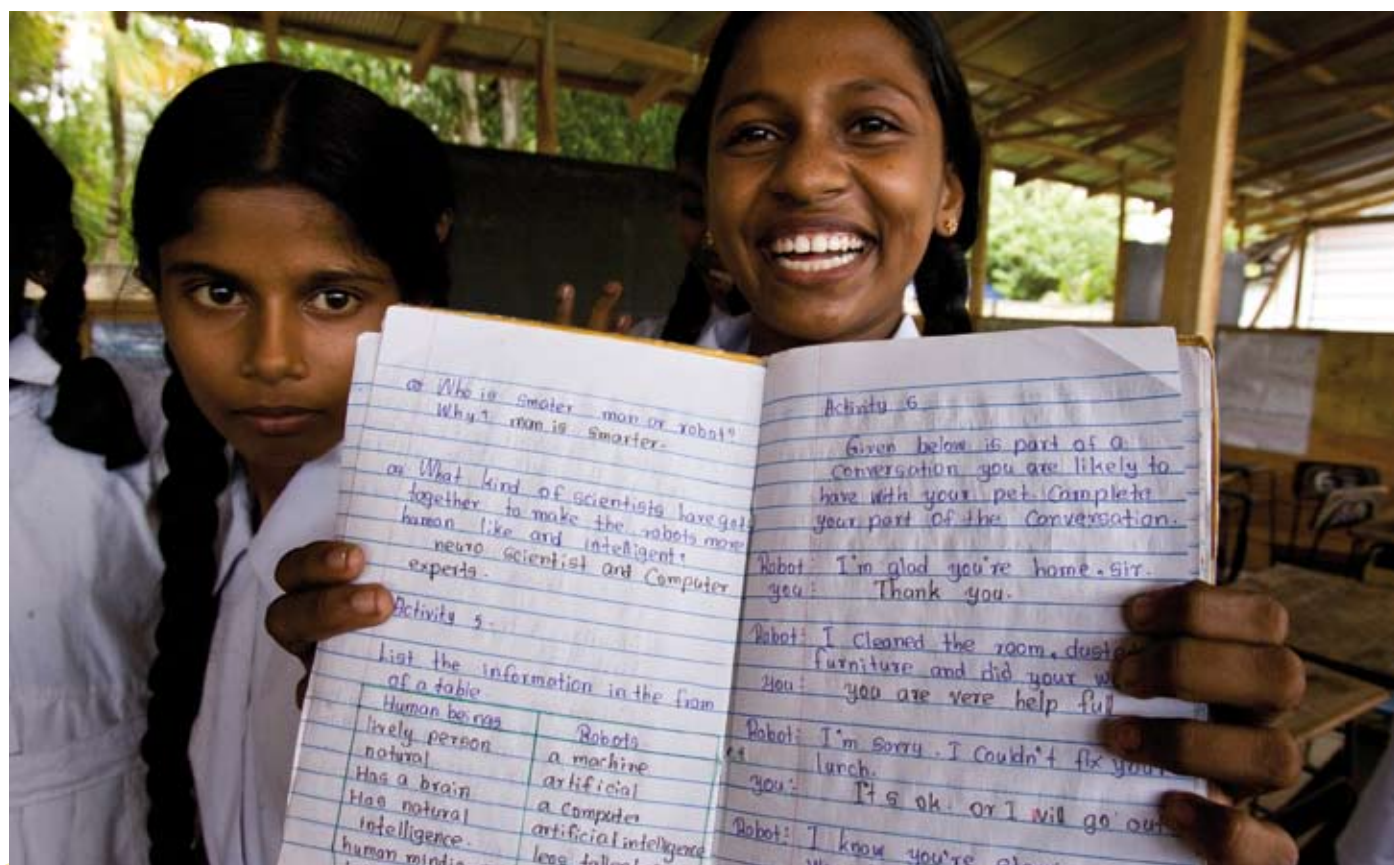 Who is smater man or robot?
Why? man is smarter.
What kind of scientists have got
together to make the robots more
human like and intelligent?
neuro scientist and Computer
experts.
Activity 5.
List the information in the from
of a table
Human beings
Robots
lively person
a machine
natural
artificial
Has a brain
a Computer
Has natural
intelligence.
artificial intelligence
human mind
less
Activity 6
Given below is part of a
Conversation you are likely to
have with your pet. Complete
your part of the Conversation.
Robot: I'm glad you're home. sir.
you: Thank you.
Robot: I Cleaned the room. dusted
furniture and did your
you: you are vere help full
Robot: I'm sorry. I Couldn't fix your
lunch.
you: It s ok. or I will go out.
Robot: I know you're